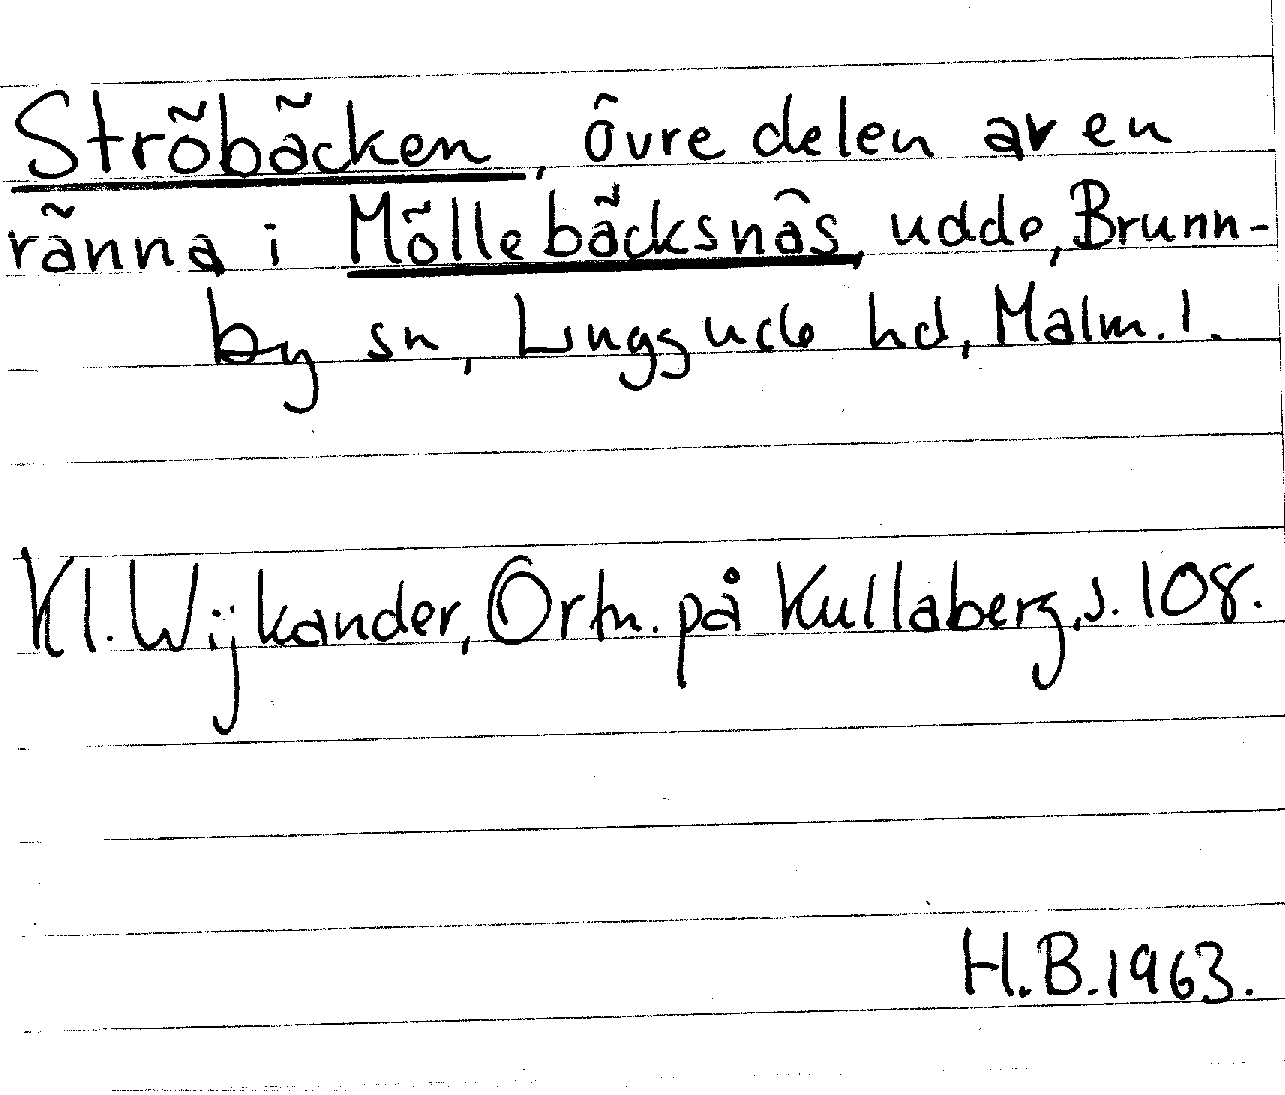 Ströbäcken, övre delen av en
ränna i Möllebäcksnäs, udde, Brunn-
by sn, Luggude hd, Malm. l.
Kl. Wijkander, Ortn. på Kullaberg, s. 108.
H.B. 1963.